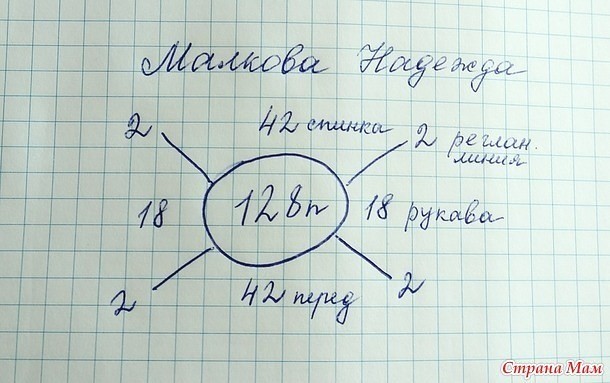 Малкова Надежда
2 42 спинка 2 реглан.
линия
18 128п 18 рукава
2 42 перед 2
Страна Мам